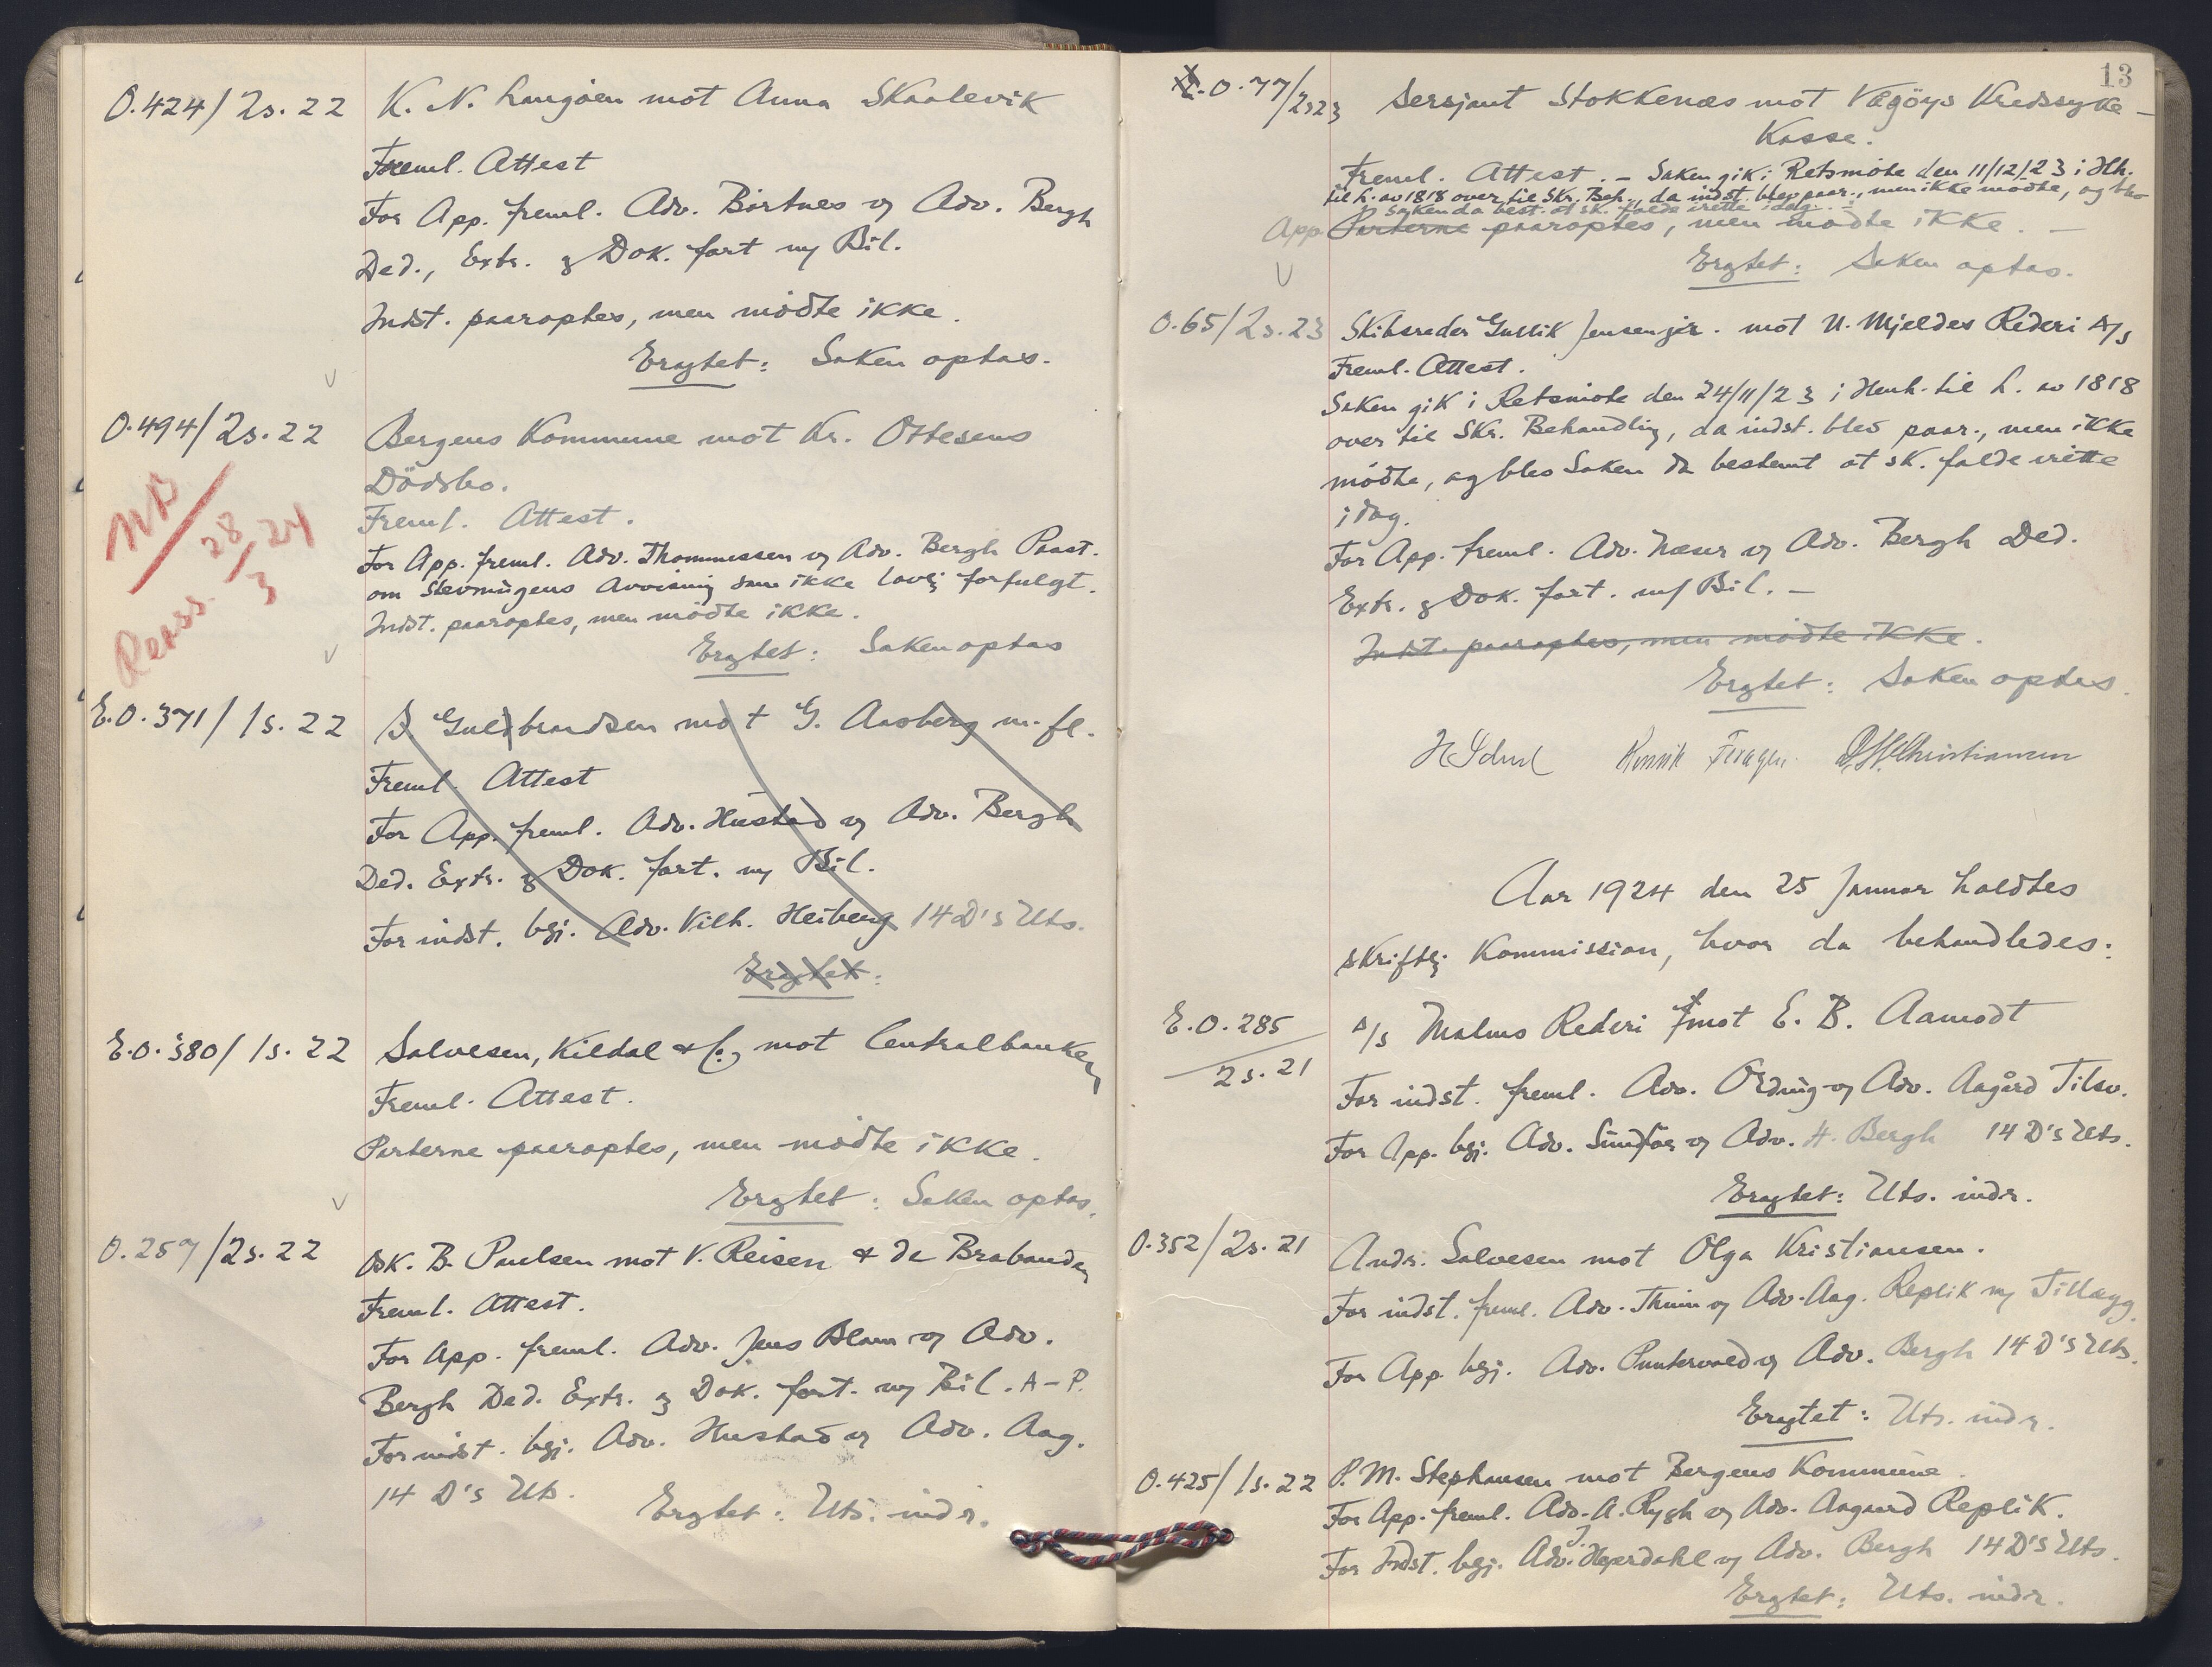 O.424/2s.22 K. N. Langøen mot Anna Skaalevik
Freml. Attest
For App. freml. Adv. Börtnes og Adv. Bergh
Ded., Extr. & Dok. fort m/ Bil.
Indst. paaroptes, men mödte ikke.
Eragtet: Saken optas.
O.494/2s.22 Bergens Kommune mot Kr. Ottesens
Dödsbo.
Freml. Attest.
For App. freml. Adv. Thommessen og Adv. Bergh Paast.
om Stevningens Avvisning som ikke lovlig forfulgt.
Indst. paaroptes, men mödte ikke.
Eragtet: Saken optas
NB
Reass. 28/3 24
E.O.371/1s.22 Guldbrandsen mot G. Aasberg m. fl.
Freml. Attest
For App. freml. Adv. Hustad og Adv. Bergh
Ded. Extr. & Dok. fort. m/ Bil.
For indst. bgj. Adv. Vilh. Heiberg 14 D's Uts.
Eragtet:
E.O.380/1s.22 Salvesen, Kildal & Co, mot Centralbanken
Freml. Attest.
Parterne paaroptes, men mödte ikke.
Eragtet: Saken optas.
O.257/2s.22 Osk. B. Paulsen mot V. Reisen & de Brabander
Freml. Attest.
For App. freml. Adv. Jens Blom og Adv.
Bergh Ded. Extr. & Dok. fort. m/ Bil. A-P.
For indst. bgj. Adv. Hustad og Adv. Aag.
14 D's Uts.
Eragtet: Uts. indr.
13
O.77/2s23 Sersjant Stokkenæs mot Vægöys Kredssyke-
Kasse.
Freml. Attest. - Saken gik i Retsmöte den 11/12/23 i Hh.
til L. av 1818 over til Skr. Beh., da indst. blev paar., men ikke mödte, og blev
Saken da best. at sk. falde irette idag. -
App. Parterne paaroptes, men mödte ikke. -
Eragtet: Saken optas.
O.65/2s.23 Skibsreder Gullik Jensen jr. mot N. Mjeldes Rederi A/s
Freml. Attest.
Saken gik i Retsmöte den 24/11/23 i Henh. til L. av 1818
over til Skr. Behandling, da indst. blev paar., men ikke
mödte, og blev Saken da bestemt at sk. falde irette
idag.
For App. freml. Adv. Næser og Adv. Bergh Ded.
Extr. & Dok. fort. m/ Bil. -
Indst. paaroptes, men mödte ikke.
Eragtet: Saken optas.
Henrik Christiansen
Aar 1924 den 25 Januar holdtes
skriftlig Kommission, hvor da behandledes:
E.O.285/2s.21 A/s Malmo Rederi mot E. B. Aamodt
For indst. freml. Adv. Ording og Adv. Aagård Tilsv.
For App. bgj. Adv. Sundfør og Adv. H. Bergh 14 D's Uts.
Eragtet: Uts. indr.
O.352/2s.21 Andr. Salvesen mot Olga Kristiansen.
For indst. freml. Adv. Thrine og Adv. Aag. Replik m/ Tillægg.
For App. bgj. Adv. Puntervold og Adv. Bergh 14 D's Uts.
Eragtet: Uts. indr.
O.425/1s.22 P. M. Stephansen mot Bergens Kommune.
For App. freml. Adv. A. Rygh og Adv. Aagaard Replik.
For Indst. bgj. Adv. J. Heyerdahl og Adv. Bergh 14 D's Uts.
Eragtet: Uts. indr.